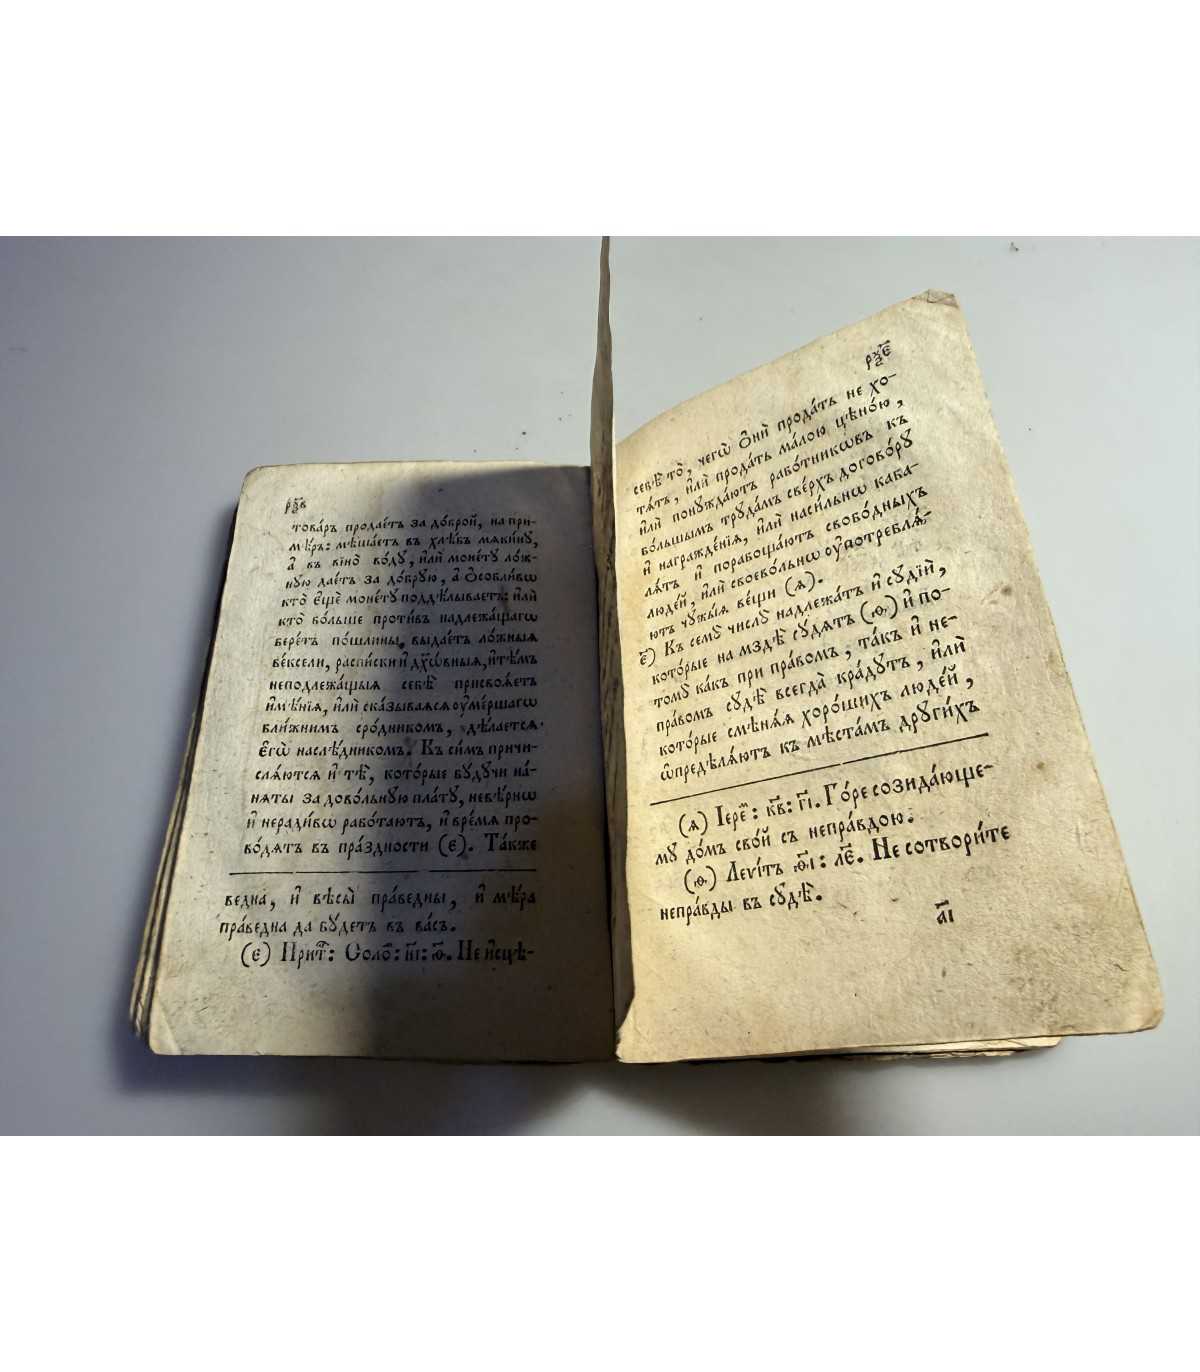 рѯ҃в
това́ръ продае́тъ за до́брой, на при-
мѣ́ръ: мѣша́етъ въ хлѣ́бъ мѧки́ну,
а҆ въ вїно̀ во́ду, и҆лѝ моне́ту ло́ж-
ную дае́тъ за до́брую, а҆ ѻ҆со́бливѡ
кто̀ є҆щѐ моне́ту поддѣ́лываетъ: и҆лѝ
кто̀ бо́льше проти́въ надлежа́щагѡ
бере́тъ по́шлины, выдае́тъ ло́жныѧ
ве́ксели, распи́ски и҆ дꙋхо́вныѧ, и҆ тѣ́мъ
неподлежа́щыѧ себѣ̀ присвоѧ́етъ
и҆мѣ́нїѧ, и҆лѝ ска́зываѧсѧ оу҆ме́ршагѡ
бли́жнимъ сро́дникомъ, дѣ́лаетсѧ
є҆гѡ̀ наслѣ́дникомъ. Къ си́мъ причи-
слѧ́ютсѧ и҆ тѣ̀, кото́рые бу́дучи на́-
нѧты за дово́льную пла́ту, невѣ́рнѡ
и҆ неради́вѡ рабо́таютъ, и҆ вре́мѧ про-
во́дѧтъ въ пра́здности (є). Та́кже
ведна, и҆ вѣ́сы̀ пра́ведны, и҆ мѣ́ра
пра́ведна да бу́детъ въ ва́съ.
(є) При́т: Соло: и҃і: ѳ҃. Не и҆сцѣ-
рѯ҃є
себѣ̀ то̀, чегѡ̀ ѻ҆нѝ прода́ть не хо-
тѧ́тъ, и҆лѝ прода́ть ма́лою цѣно́ю,
и҆лѝ понужда́ютъ рабо́тникѡвъ къ
бо́льшымъ труда́мъ све́рхъ догово́ру
и҆ награжде́нїѧ, и҆лѝ наси́льнѡ каба-
лѧ́тъ и҆ порабоща́ютъ свобо́дныхъ
люде́й, и҆лѝ своево́льнѡ оу҆потреблѧ́-
ютъ чужы́ѧ ве́щи (ѕ).
є҃) Къ семꙋ̀ числꙋ̀ надлежа́тъ и҆ сꙋдїѝ,
кото́рые на мздѣ̀ сꙋ́дѧтъ (ѳ) и҆ по-
томꙋ̀ ка́къ при пра́вомъ, та́къ и҆ не-
пра́вомъ сꙋдѣ̀ всегда̀ краду́тъ, и҆лѝ
кото́рые смѣнѧ́ѧ хоро́шихъ люде́й,
ѡ҆предѣлѧ́ютъ къ мѣста́мъ други́хъ
(ѕ) Іере: к҃в: г҃і. Го́ре созида́юще-
му до́мъ сво́й съ непра́вдою.
(ѳ) Леѵі́тъ ѳ҃і: л҃є. Не сотвори́те
непра́вды въ сꙋдѣ̀.
а҃і